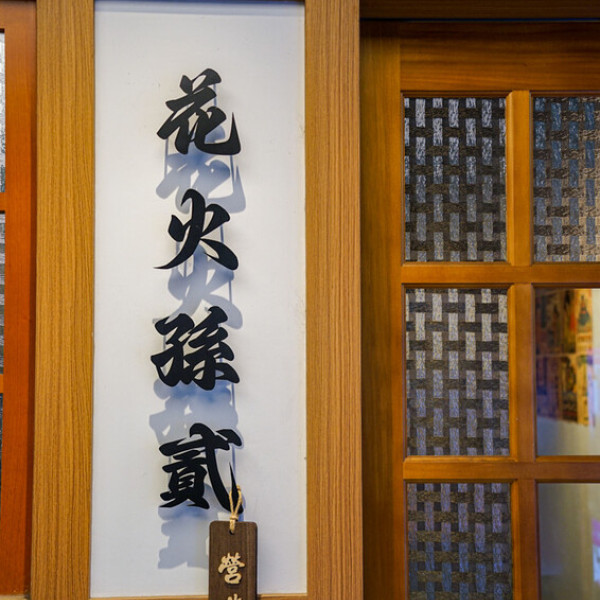 花火孫貳
營